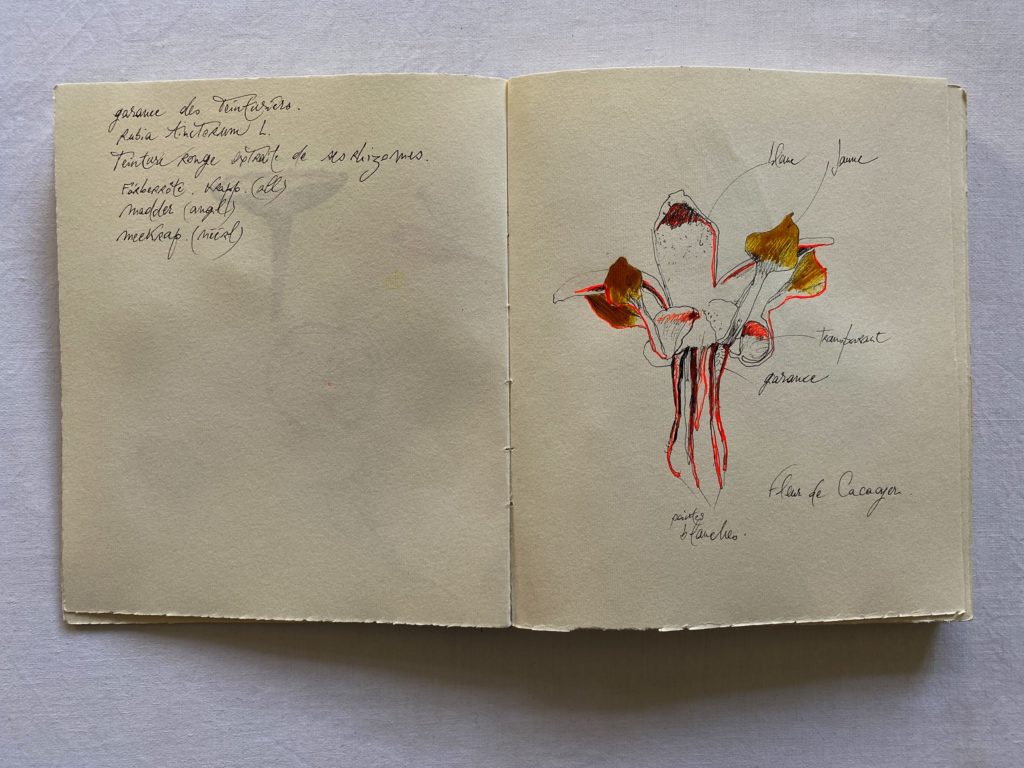 garance des Teinturiers.
Rubia Tinctorum L.
Teinture Rouge extraite de ses Rhizomes.
Färberröte. Krapp. (all)
madder (angl)
meekrap. (néerl)
blanc jaune
transparent
garance
Fleur de Cacaoyer.
pointes
blanches.